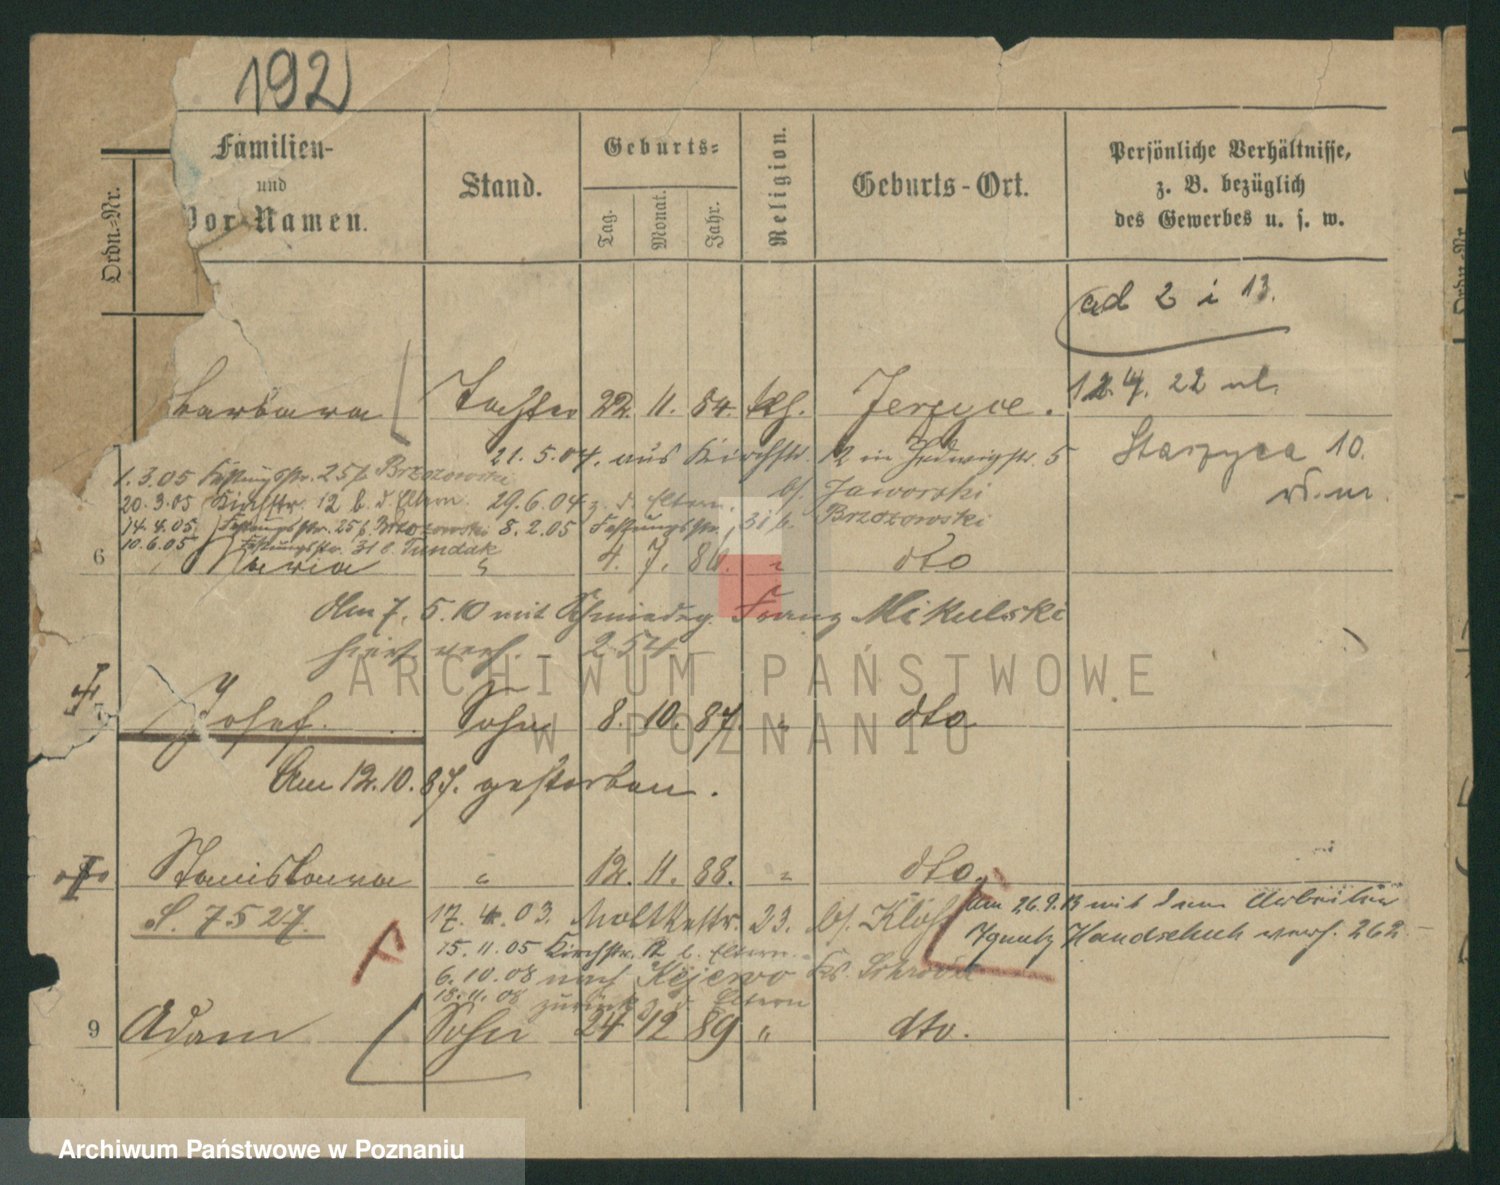 192
Ordn.-Nr.
Familien-
und
Vor-Namen.
Stand.
Geburts-
Tag.
Monat.
Jahr.
Religion.
Geburts-Ort.
Persönliche Verhältnisse,
z. B. bezüglich
des Gewerbes u. s. w.
ad 2 i 13.
Barbara Tochter 22. 11. 84. kth. Jerzyce.
21. 5. 04. aus Kirchstr. 12 in Hedwigstr. 5
10.
1.3.05 Festungsstr. 25 b. Brzozowski
b/ Jaworski
20.3.05 Kirchstr. 12 b. d. Eltern 29.6.04 z. d. Eltern.
14.4.05. Festungsstr. 25 b. Brzozowski 8.2.05 Festungsstr. 31 b. Brzozowski
10.6.05 Festungsstr. 31 b. Tundak
6 Maria " 4. 7. 86. " dto
Am 7. 5. 10 mit Schmiedeg. Franz Mikulski
hier verh. 254
7 Josef. Sohn 8. 10. 87. " dto
Am 12. 10. 87. gestorben.
8 Stanislawa " 12. 11. 88. " dto.
S. 7527.
17. 4. 03. Moltkestr. 23. b/
Am 26.9.13 mit dem Arbeiter
Ignatz Handschuh verh. 262
15. 11. 05 Kirchstr. 12 b. Eltern
6. 10. 08 nach Kijewo Kr. Schroda
18. 11. 08 zurück z. d. Eltern
9 Adam Sohn 24 12 89 " dto.
ARCHIWUM PAŃSTWOWE
W POZNANIU
Archiwum Państwowe w Poznaniu